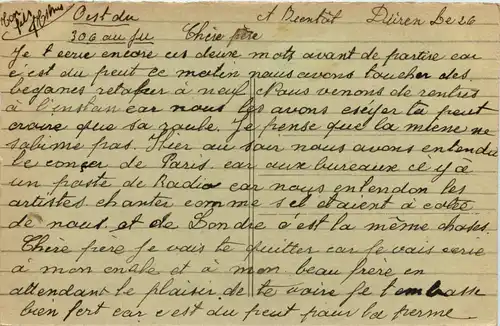 Bon
fils
Oest du A Bientôt Düren Le 26
306 au fu Chère père
Je t ecrie encore ces deux mots avant de partire car
c'est du peut ce matin nous avons toucher des
béganes à neuf Nous venons de rentres
à l'instan car nous les avons eséyer ta peut
croire que sa roule. Je pense que la mienne ne
sabime pas. Hier au soir nous avons entendu
le conçer de Paris car aux bureaux il y à
un poste de Radio car nous entendon les
artistes chanter comme s'il etaient à coté
de nous et de Londre c'est la même choses.
Chère frère je vais te quitter car je vais ecrie
à mon oncle et à mon beau frere en
attendant le plaisir de te voire Je t embrasse
bien fort car c'est du peut pour la perme